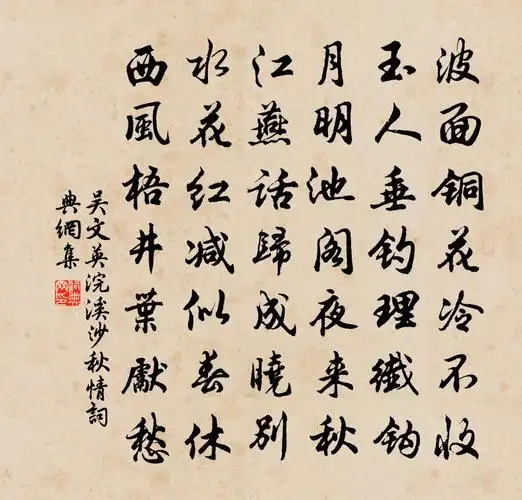 波面銅花冷不收
玉人垂钓理纖钩
月明池阁夜来秋
江燕話歸成曉别
水花红减似春休
西風梧井葉獻愁
吴文英浣溪沙秋情詞
典網集